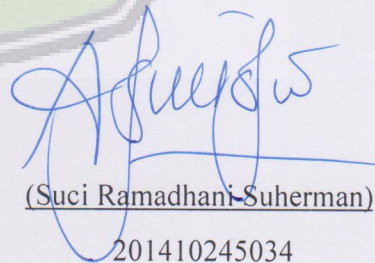 (Suci Ramadhani Suherman)
201410245034